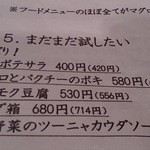 ※フードメニューのほぼ全てがマグロ
5. まだまだ試したい
り!
ポテサラ 400円(420円)
ロとパクチーのポキ 580円(6
モク豆腐 530円(556円)
ブ箱 680円(714円)
野菜のツーニャカウダソー